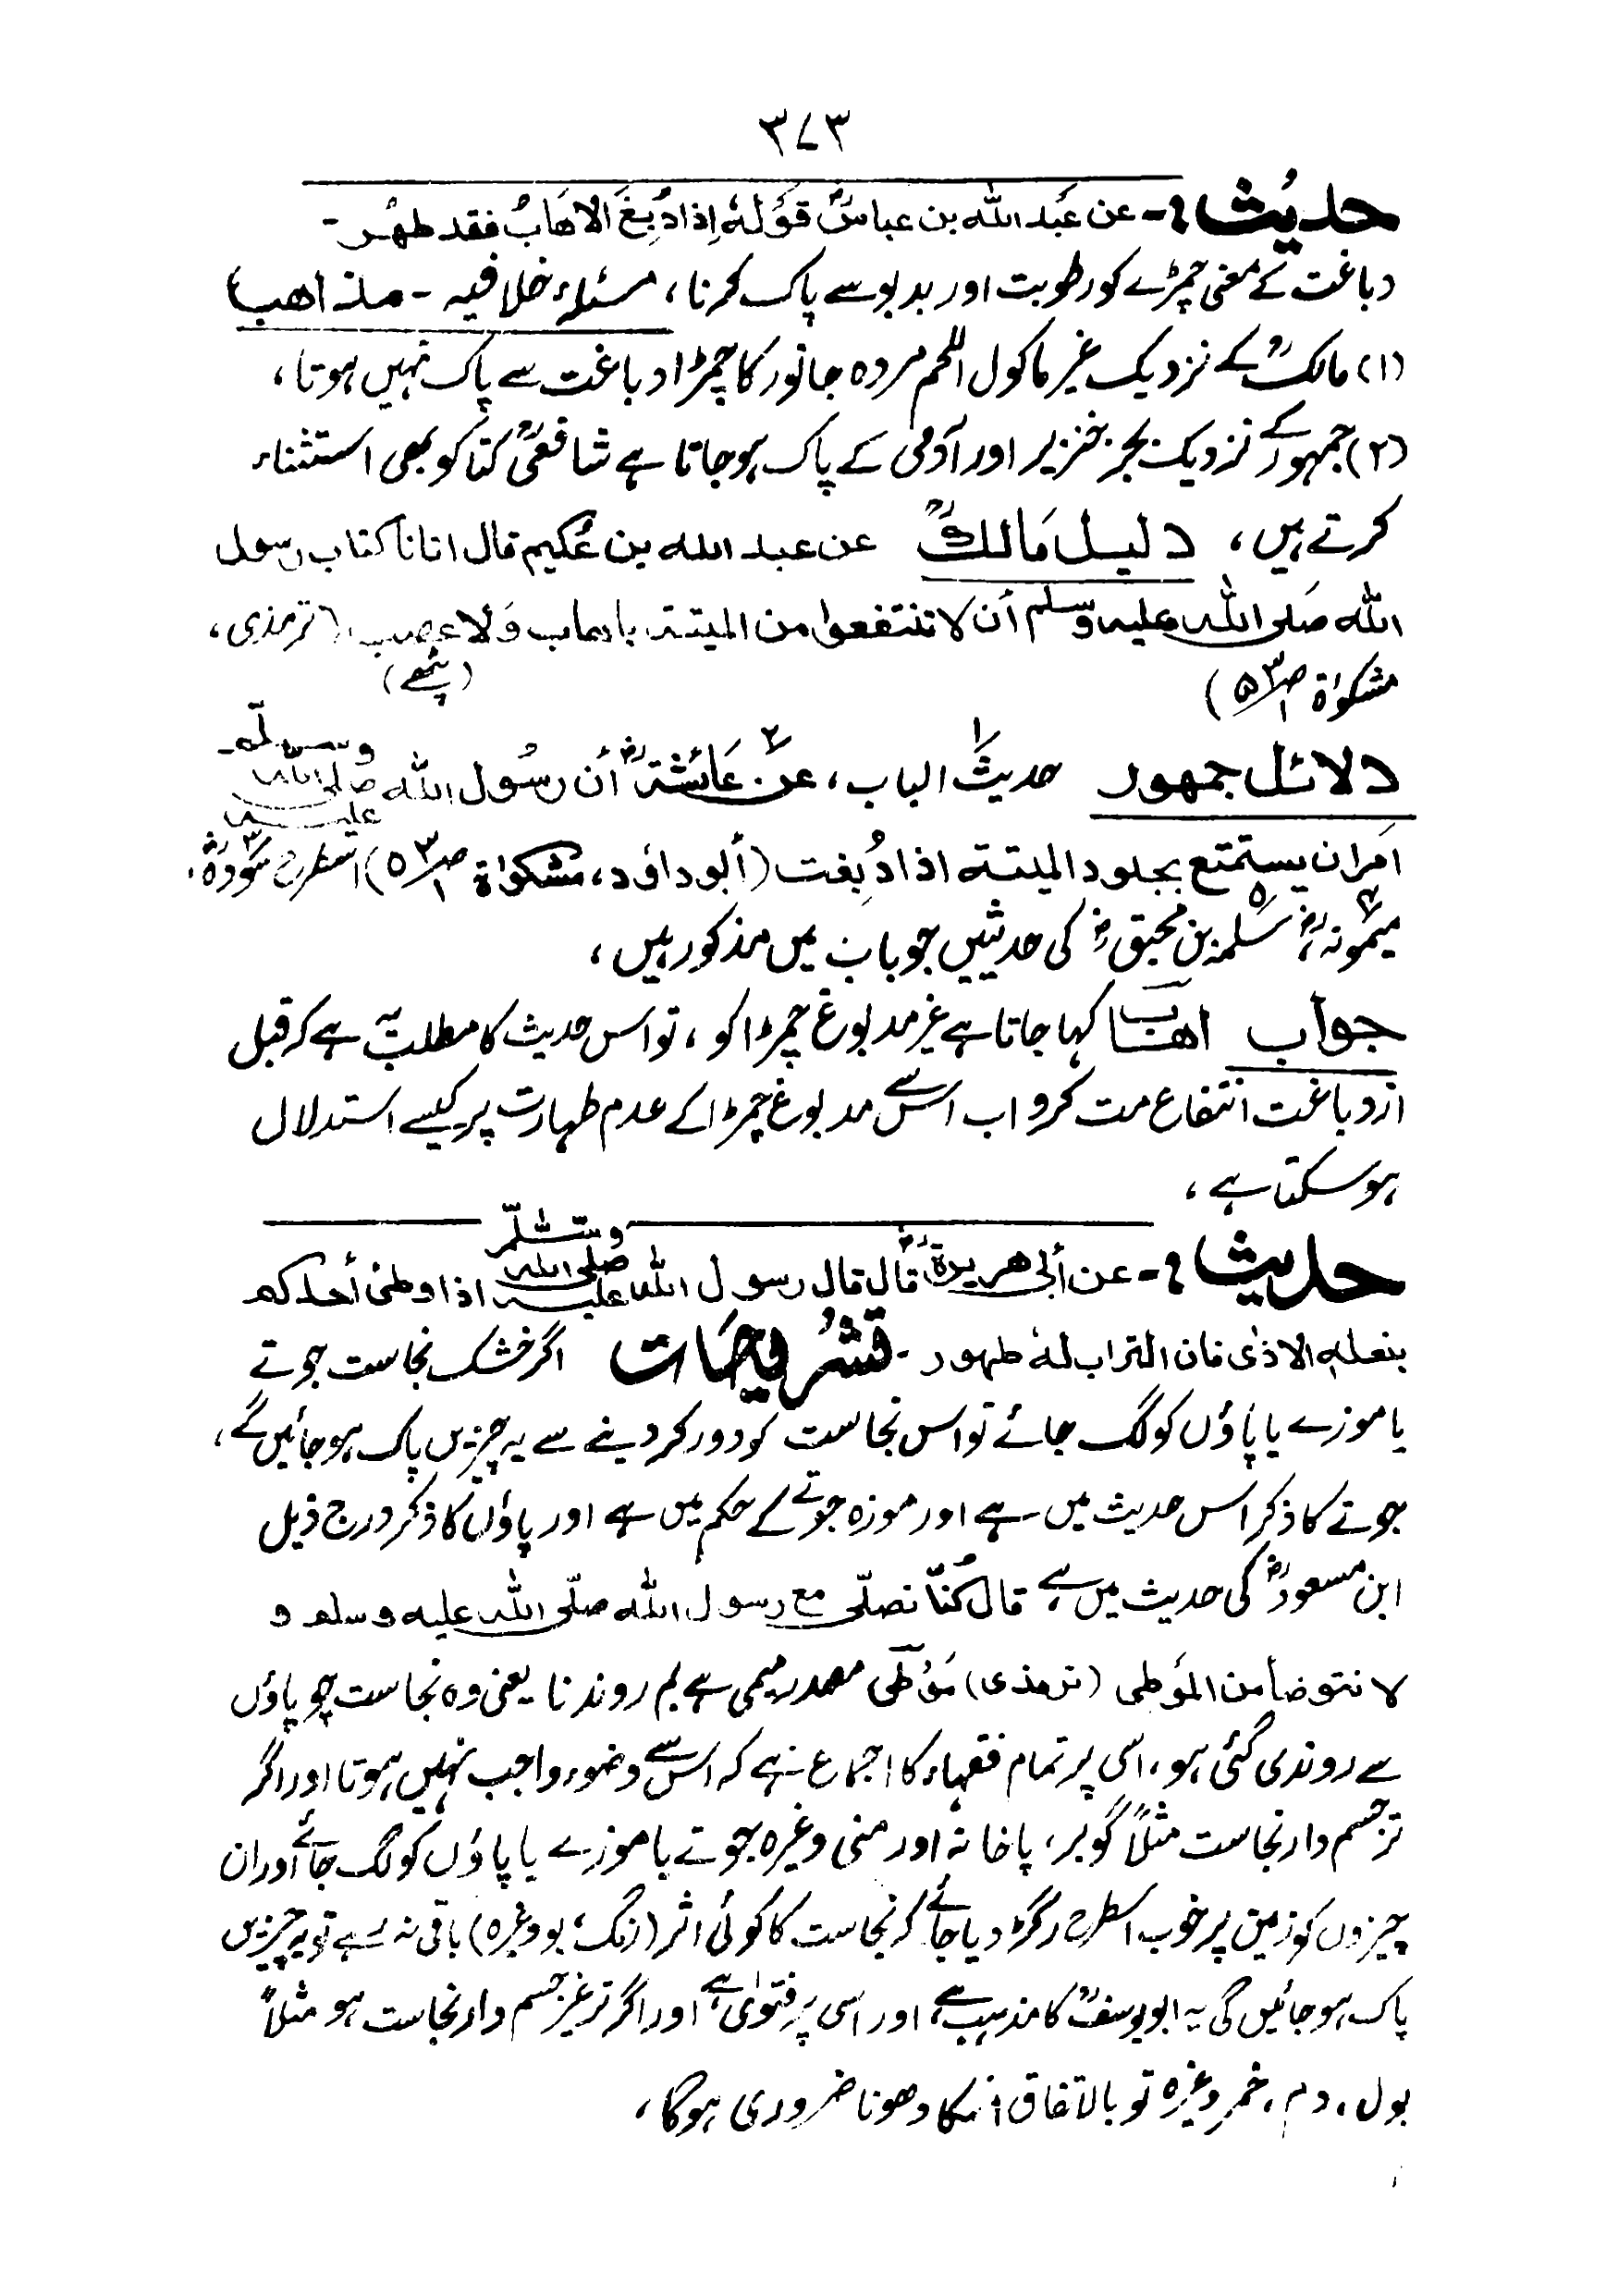 ۳۷۳
حدیث :- عن عبد الله بن عباسؓ قولهٗ إذا دُبِغَ الاهَابُ فقد طهُر-
دباغت کے معنی چمڑے کو رطوبت اور بدبو سے پاک کرنا، مسئلہ خلافیہ - مذاهب
(۱) مالکؒ کے نزدیک غیر ماکول اللحم مردہ جانور کا چمڑا دباغت سے پاک نہیں ہوتا،
(۲) جمہور کے نزدیک بجز خنزیر اور آدمی کے پاک ہو جاتا ہے شافعیؒ کتا کو بھی استثناء
کرتے ہیں، دلیل مَالکؒ عن عبد الله بن عُکیم قال اتانا کتاب رسول
الله صَلی الله علیه وسلم أن لا تنتفعوا من المیتة باهاب وَلا عصب (ترمذی،
(پٹھے)
مشکوٰة ص۵۳/۱)
دلائل جمهور ۱ حدیثُ الباب، ۲ عن عَائشةؓ أن رسُول الله صلی الله علیه وسلم
امَران یستمتع بجلود المیتة اذا دُبِغت (أبوداؤد، مشکوٰة ص۵۳/۱) اسطرح ۳ سَودہؓ،
۴ میمونہؓ، ۵ سلمہ بن محبقؓ کی حدیثیں جو باب میں مذکور ہیں،
جواب اهَاب کہا جاتا ہے غیر مدبوغ چمڑا کو، تو اس حدیث کا مطلب یہ ہے کہ قبل
از دباغت انتفاع مت کرو اب اس سے مدبوغ چمڑا کے عدم طہارت پر کیسے استدلال
ہو سکتا ہے،
حدیث :- عن أبی هریرةؓ قال قال رسول الله صلی الله علیه وسلم اذا وطئ أحدکم
بنعله الاذٰی فان التراب لهٗ طهور - تشریحات اگر خشک نجاست جوتے
یا موزے یا پاؤں کو لگ جائے تو اس نجاست کو دور کر دینے سے یہ چیزیں پاک ہو جائیں گے،
جوتے کا ذکر اس حدیث میں ہے اور موزہ جوتے کے حکم میں ہے اور پاؤں کا ذکر درج ذیل
ابن مسعودؓ کی حدیث میں ہے قال کُنّا نصلّی مع رسول الله صلّی الله علیه وسلم و
لا نتوضأ من المَوطی (ترمذی) مَوْطَی مصدر میمی ہے بم روندنا یعنی وہ نجاست جو پاؤں
سے روندی گئی ہو، اسی پر تمام فقہاء کا اجماع ہے کہ اس سے وضوء واجب نہیں ہوتا اور اگر
تر جسم دار نجاست مثلاً گوبر، پاخانہ اور منی وغیرہ جوتے یا موزے یا پاؤں کو لگ جائے اور ان
چیزوں کو زمین پر خوب اسطرح رگڑ دیا جائے کہ نجاست کا کوئی اثر (رنگ، بو وغیرہ) باقی نہ رہے تو یہ چیزیں
پاک ہو جائیں گی یہ ابو یوسفؒ کا مذہب ہے اور اسی پر فتوٰی ہے، اور اگر تر غیر جسم دار نجاست ہو مثلاً
بول، دم، خمر وغیرہ تو بالاتفاق انکا دھونا ضروری ہوگا،